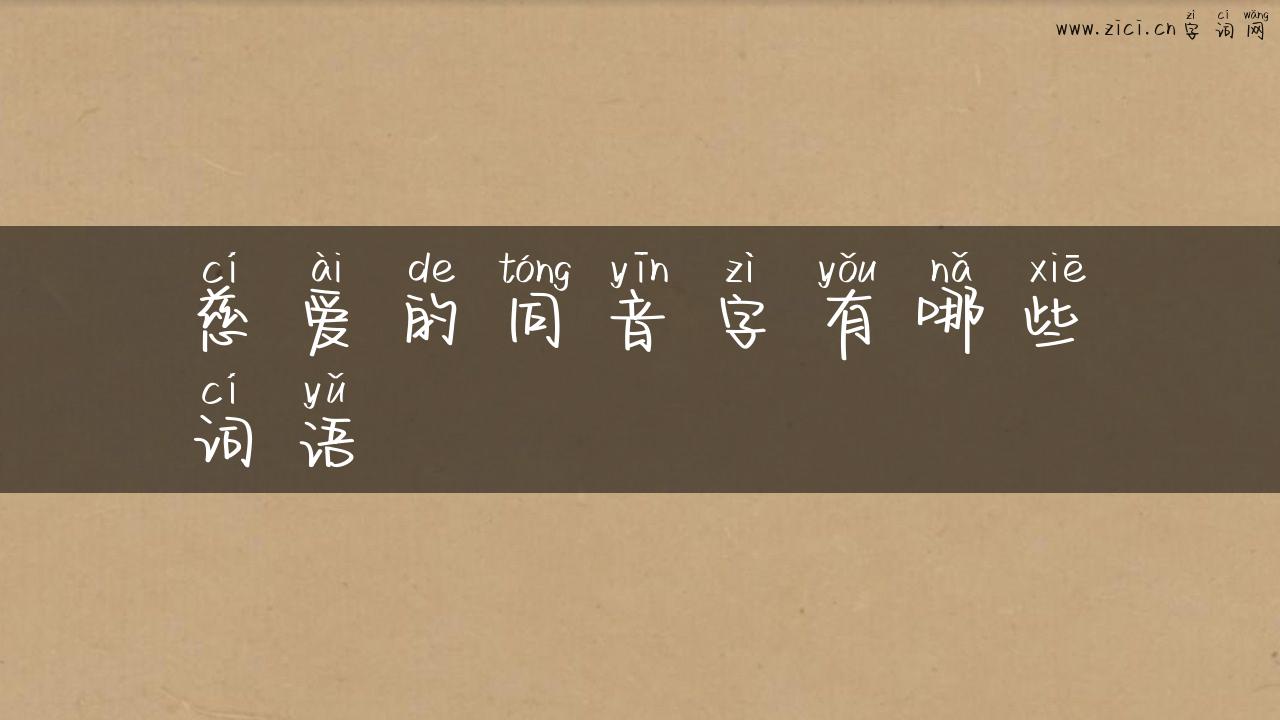 zì cí wǎng
www.zici.cn 字词网
cí ài de tóng yīn zì yǒu nǎ xiē
慈爱的同音字有哪些
cí yǔ
词语